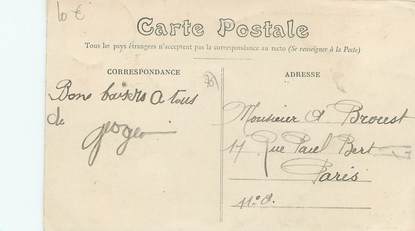 10 €
Carte Postale
Tous les pays étrangers n'acceptent pas la correspondance au recto (Se renseigner à la Poste)
CORRESPONDANCE
ADRESSE
Bons baisers A tous
de
Monsieur A Broust
17 Rue Paul Bert
Paris
11e A.